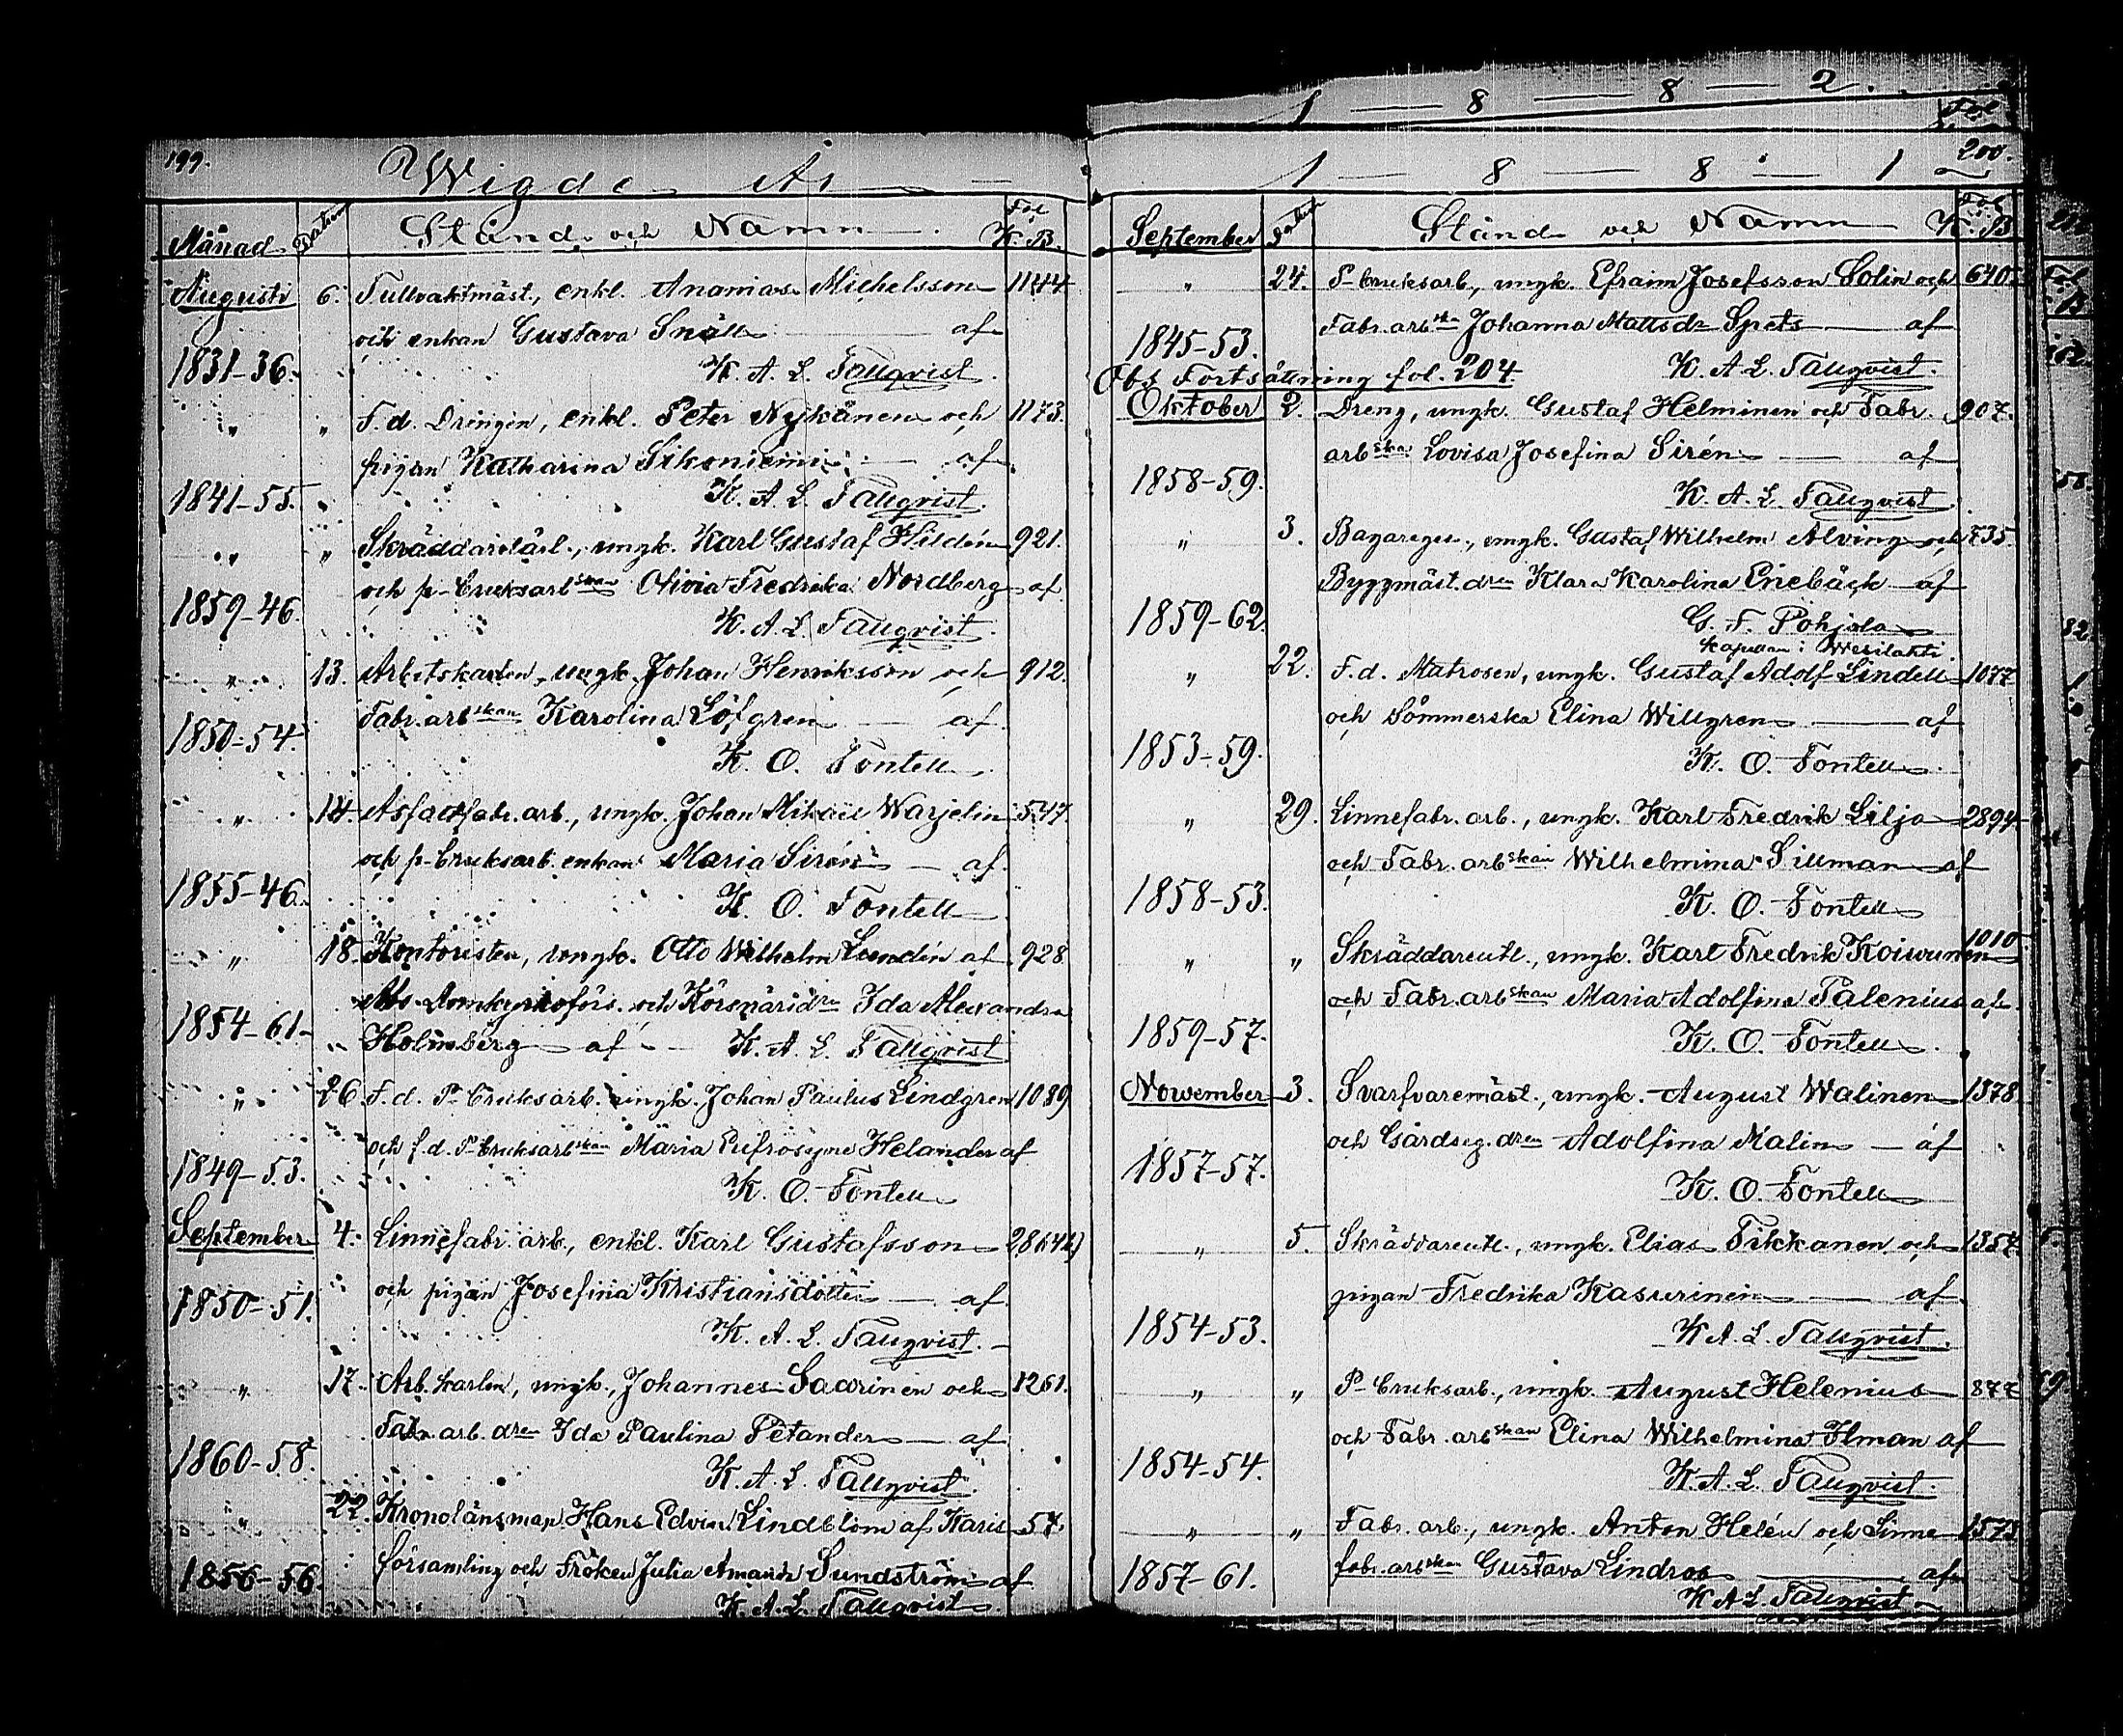 199.
Wigde År
Månad Datum Stånd och Namn Fol K. B.
Augusti 6. Tullvaktmäst., enkl. Ananias Michelsson 1144
och enkan Gustava Snäll af
1831-36. K. A. L. Tallqvist.
" " F. d. Drengen, enkl. Peter Nykänen och 1173.
pigan Katharina Sikoniemi af
1841-55. K. A. L. Tallqvist.
" " Skräddarelärl., ungk. Karl Gustaf Hildén 921.
och p-bruksarbskan Olivia Fredrika Nordberg af
1859-46. K. A. L. Tallqvist.
" 13. Arbetskarlen, ungk. Johan Henriksson och 912.
Fabr.arbskan Karolina Löfgren af
1850-54. K. O. Fontell
" 14. Asfaltfabr.arb., ungk. Johan Mikael Warjelin 547.
och p-bruksarb. enkan Maria Sirén af
1855-46. K. O. Fontell
" 18. Kontoristen, ungk. Otto Wilhelm Lundén af 928
Åbo Domkyrkoförs. och Körsnäridrn Ida Alexandra
1854-61. Holmberg af K. A. L. Tallqvist
" 26. F. d. P-bruksarb. ungk. Johan Paulus Lindgren 1089
och f. d. P-bruksarbskan Maria Eufrosyne Helander af
1849-53. K. O. Fontell
September 4. Linnefabr. arb., enkl. Karl Gustafsson
och pigan Josefina Kristiansdotter af
1850-51. K. A. L. Tallqvist.
" 17. Arb.karlen, ungk., Johannes Saarinen och 1261.
Fabr. arb. dren Ida Paulina Petander af
1860-58. K. A. L. Tallqvist.
" 22. Kronolänsman Hans Edvin Lindblom af Karis 57.
församling och Fröken Julia Amanda Sundström af
1856-56. K. A. L. Tallqvist
1 — 8 — 8 — 2.
Fol
200.
1 8 8 1
September Datum Stånd och Namn Fol K. B
" 24. P-bruksarb., ungk. Efraim Josefsson Solin och 640.
Fabr.arbskn Johanna Mattsdr Spets af
1845-53. K. A. L. Tallqvist.
Obs Fortsättning fol. 204.
Oktober 2. Dreng, ungk. Gustaf Helminen och Fabr. 907.
arbskan Lovisa Josefina Sirén af
1858-59. K. A. L. Tallqvist.
" 3. Bagareges., ungk. Gustaf Wilhelm Alving och 735.
Byggmäst.dren Klara Karolina Enebäck af
1859-62. G. F. Pohjola
kapellan i Wesilahti.
" 22. F. d. Matrosen, ungk. Gustaf Adolf Lindell 1077
och Sömmerska Elina Willgren af
1853-59. K. O. Fontell
" 29. Linnefabr. arb., ungk. Karl Fredrik Lilja 2894
och Fabr. arbskan Wilhelmina Sillman af
1858-53. K. O. Fontell
" " Skräddareutl., ungk. Karl Fredrik Koivunen 1010
och Fabr.arbskan Maria Adolfina Palenius af
1859-57. K. O. Fontell
November 3. Svarfvaremäst., ungk. August Walinen 1378.
och Gårdseg.dren Adolfina Malin af
1857-57. K. O. Fontell
" 5. Skräddareutl., ungk. Elias Tikkanen och 1357.
pigan Fredrika Kasurinen af
1854-53. K A. L. Tallqvist.
" " P-bruksarb., ungk. August Helenius 877
och Fabr. arbskan Elina Wilhelmina Ilman af
1854-54. K. A. L. Tallqvist.
" " Fabr. arb., ungk. Anton Helén och Linne- 1573
fabr.arbskan Gustava Lindros af
1857-61. K A L. Tallqvist